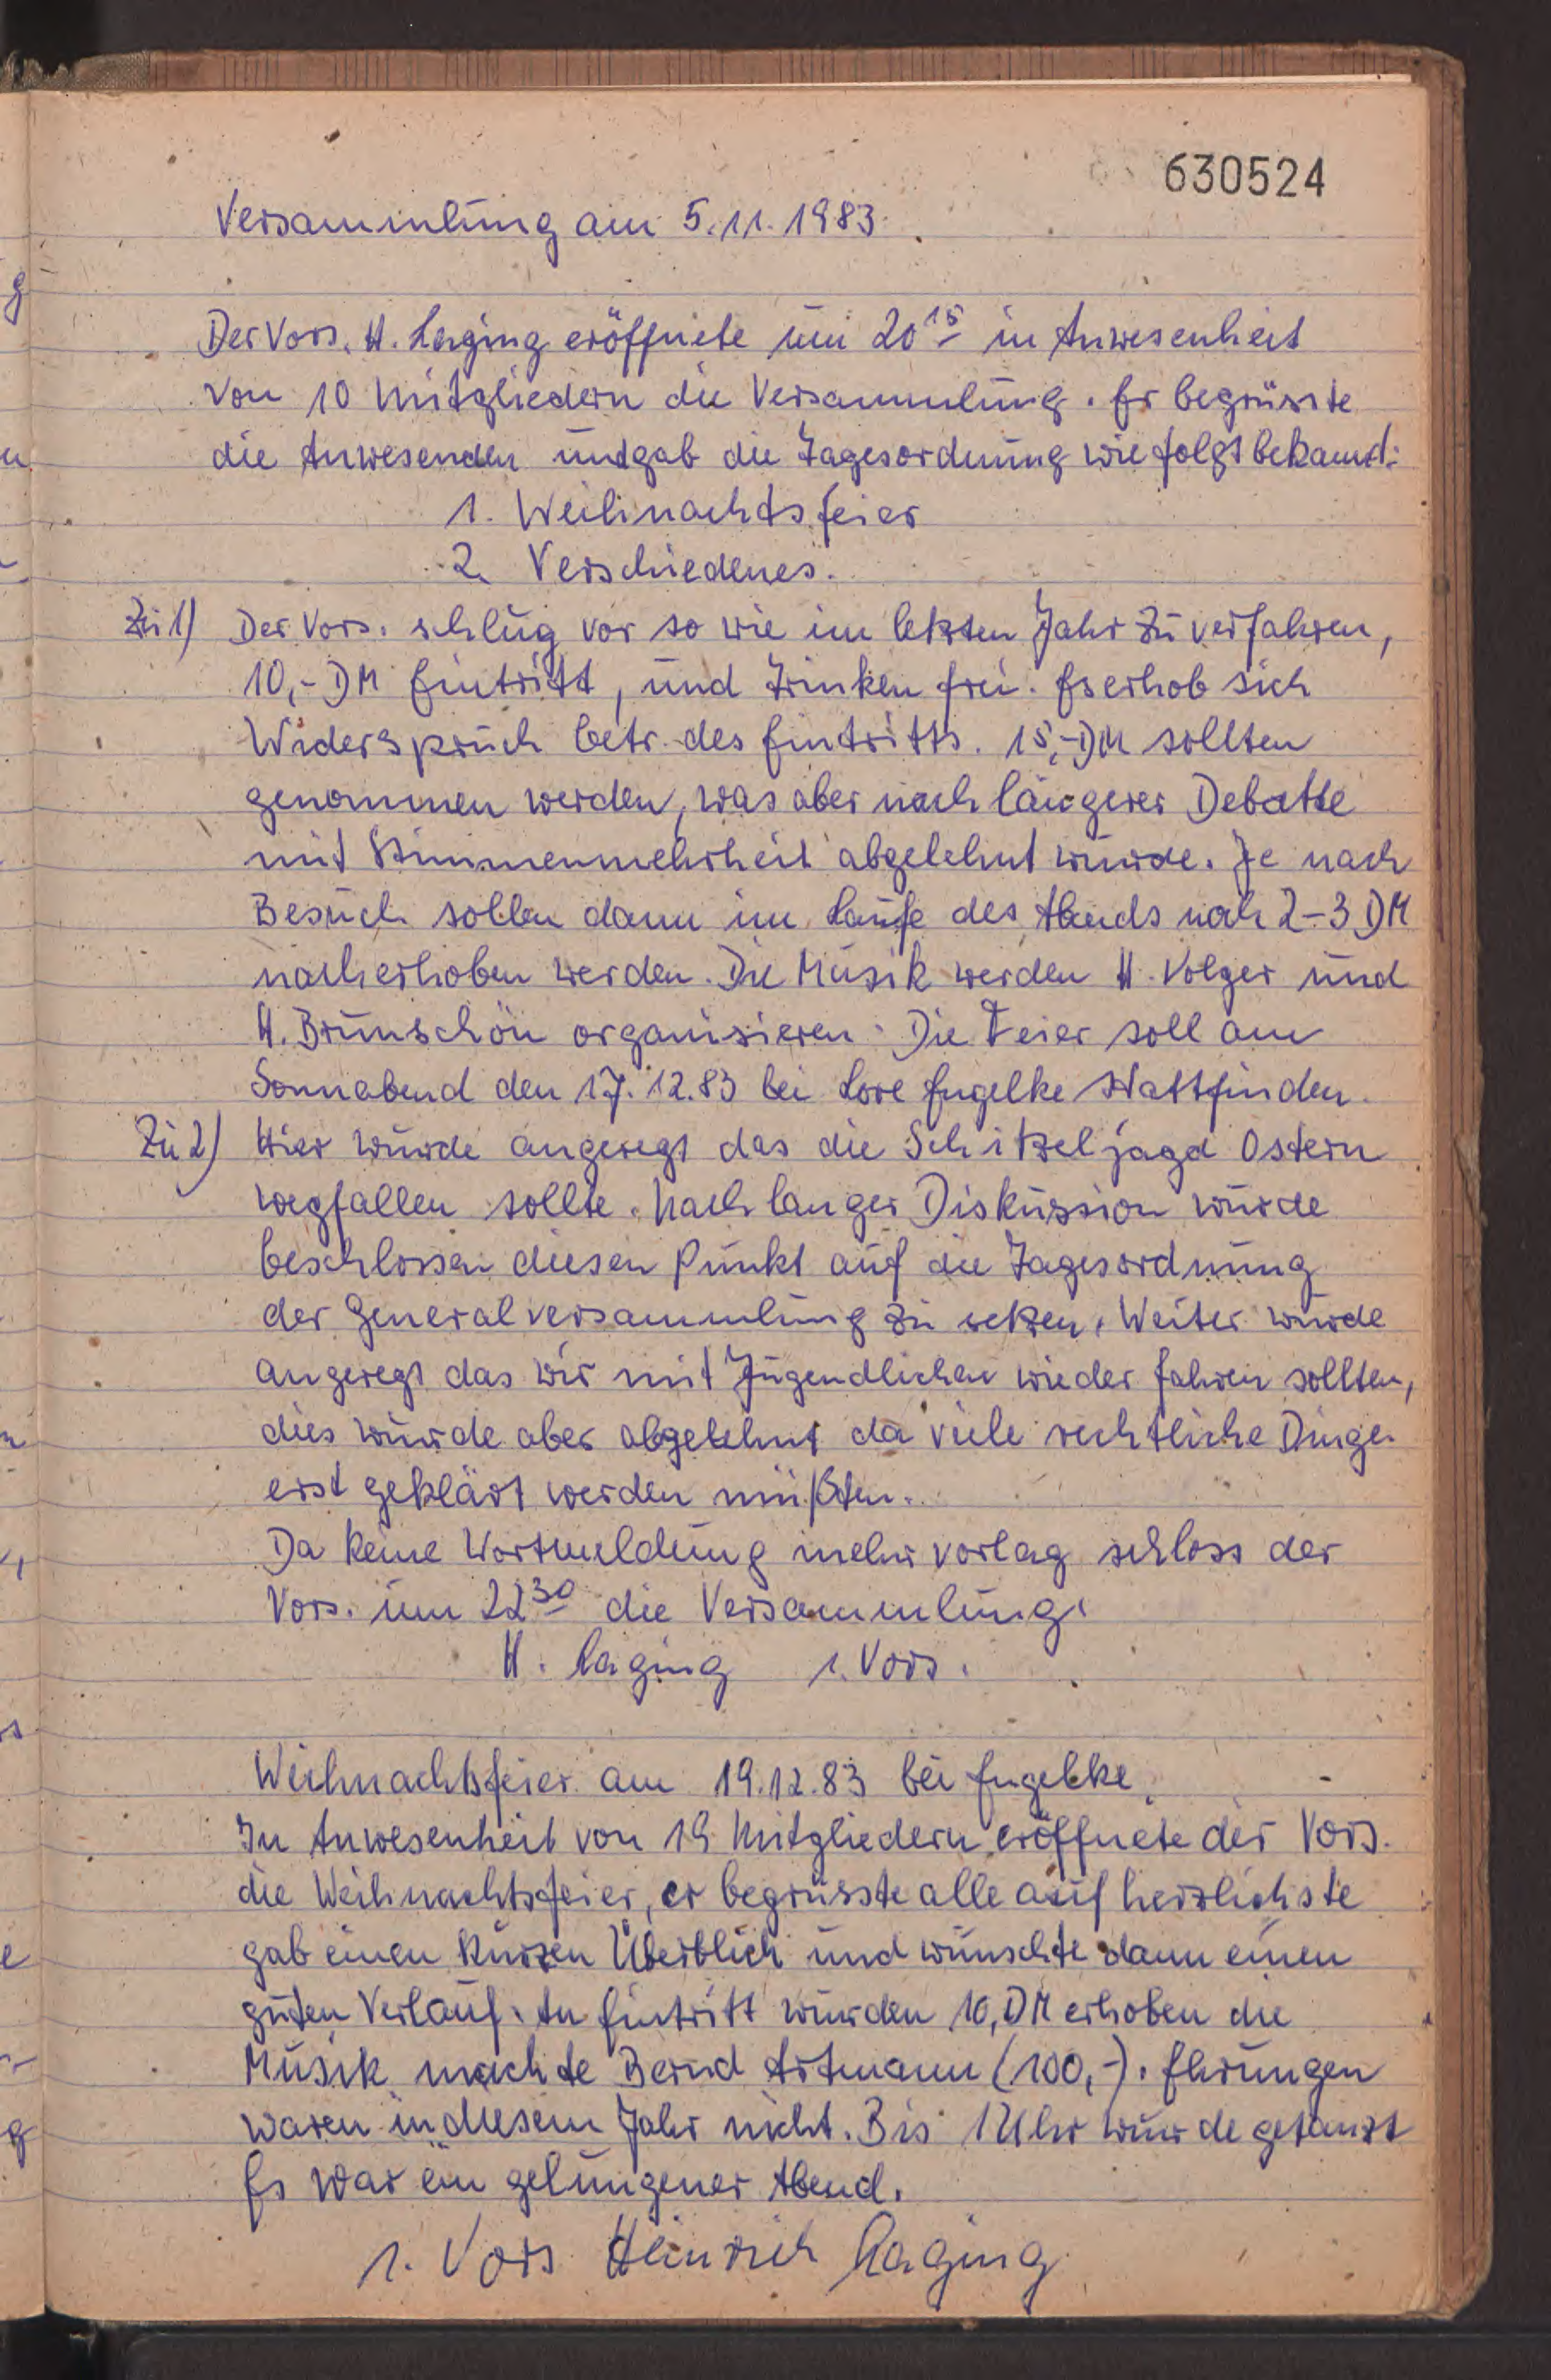 630524
Versammlung am 5.11.1983.
Der Vors. H. Laging eröffnete um 20¹⁵ in Anwesenheit
von 10 Mitgliedern die Versammlung. Er begrüsste
die Anwesenden und gab die Tagesordnung wie folgt bekannt:
1. Weihnachtsfeier
2. Verschiedenes.
Zu 1) Der Vors. schlug vor so wie im letzten Jahr zu verfahren,
10,- DM Eintritt, und Trinken frei. Es erhob sich
Widerspruch betr. des Eintritts. 15,- DM sollten
genommen werden, was aber nach längerer Debatte
mit Stimmenmehrheit abgelehnt wurde. Je nach
Besuch sollen dann im Laufe des Abends noch 2-3 DM
nacherhoben werden. Die Musik werden H. Volger und
H. Brunschön organisieren. Die Feier soll am
Sonnabend den 17.12.83 bei Lore Engelke stattfinden.
Zu 2) Hier wurde angeregt das die Schitzeljagd Ostern
wegfallen sollte. Nach langer Diskussion wurde
beschlossen diesen Punkt auf die Tagesordnung
der Generalversammlung zu setzen. Weiter wurde
angeregt das wir mit Jugendlichen wieder fahren sollten,
dies wurde aber abgelehnt da viele rechtliche Dinge
erst geklärt werden müßten.
Da keine Wortmeldung mehr vorlag schloss der
Vors. um 22³⁰ die Versammlung.
H. Laging 1. Vors.
Weihnachtsfeier am 19.12.83 bei Engelke.
In Anwesenheit von 19 Mitgliedern eröffnete der Vors.
die Weihnachtsfeier, er begrüsste alle auf herzlichste
gab einen kurzen Überblick und wünschte dann einen
guten Verlauf. An Eintritt wurden 10, DM erhoben die
Musik machte Bernd Artmann (100,-). Ehrungen
waren in diesem Jahr nicht. Bis 1 Uhr wurde getanzt
Es war ein gelungener Abend.
1. Vors Heinrich Laging